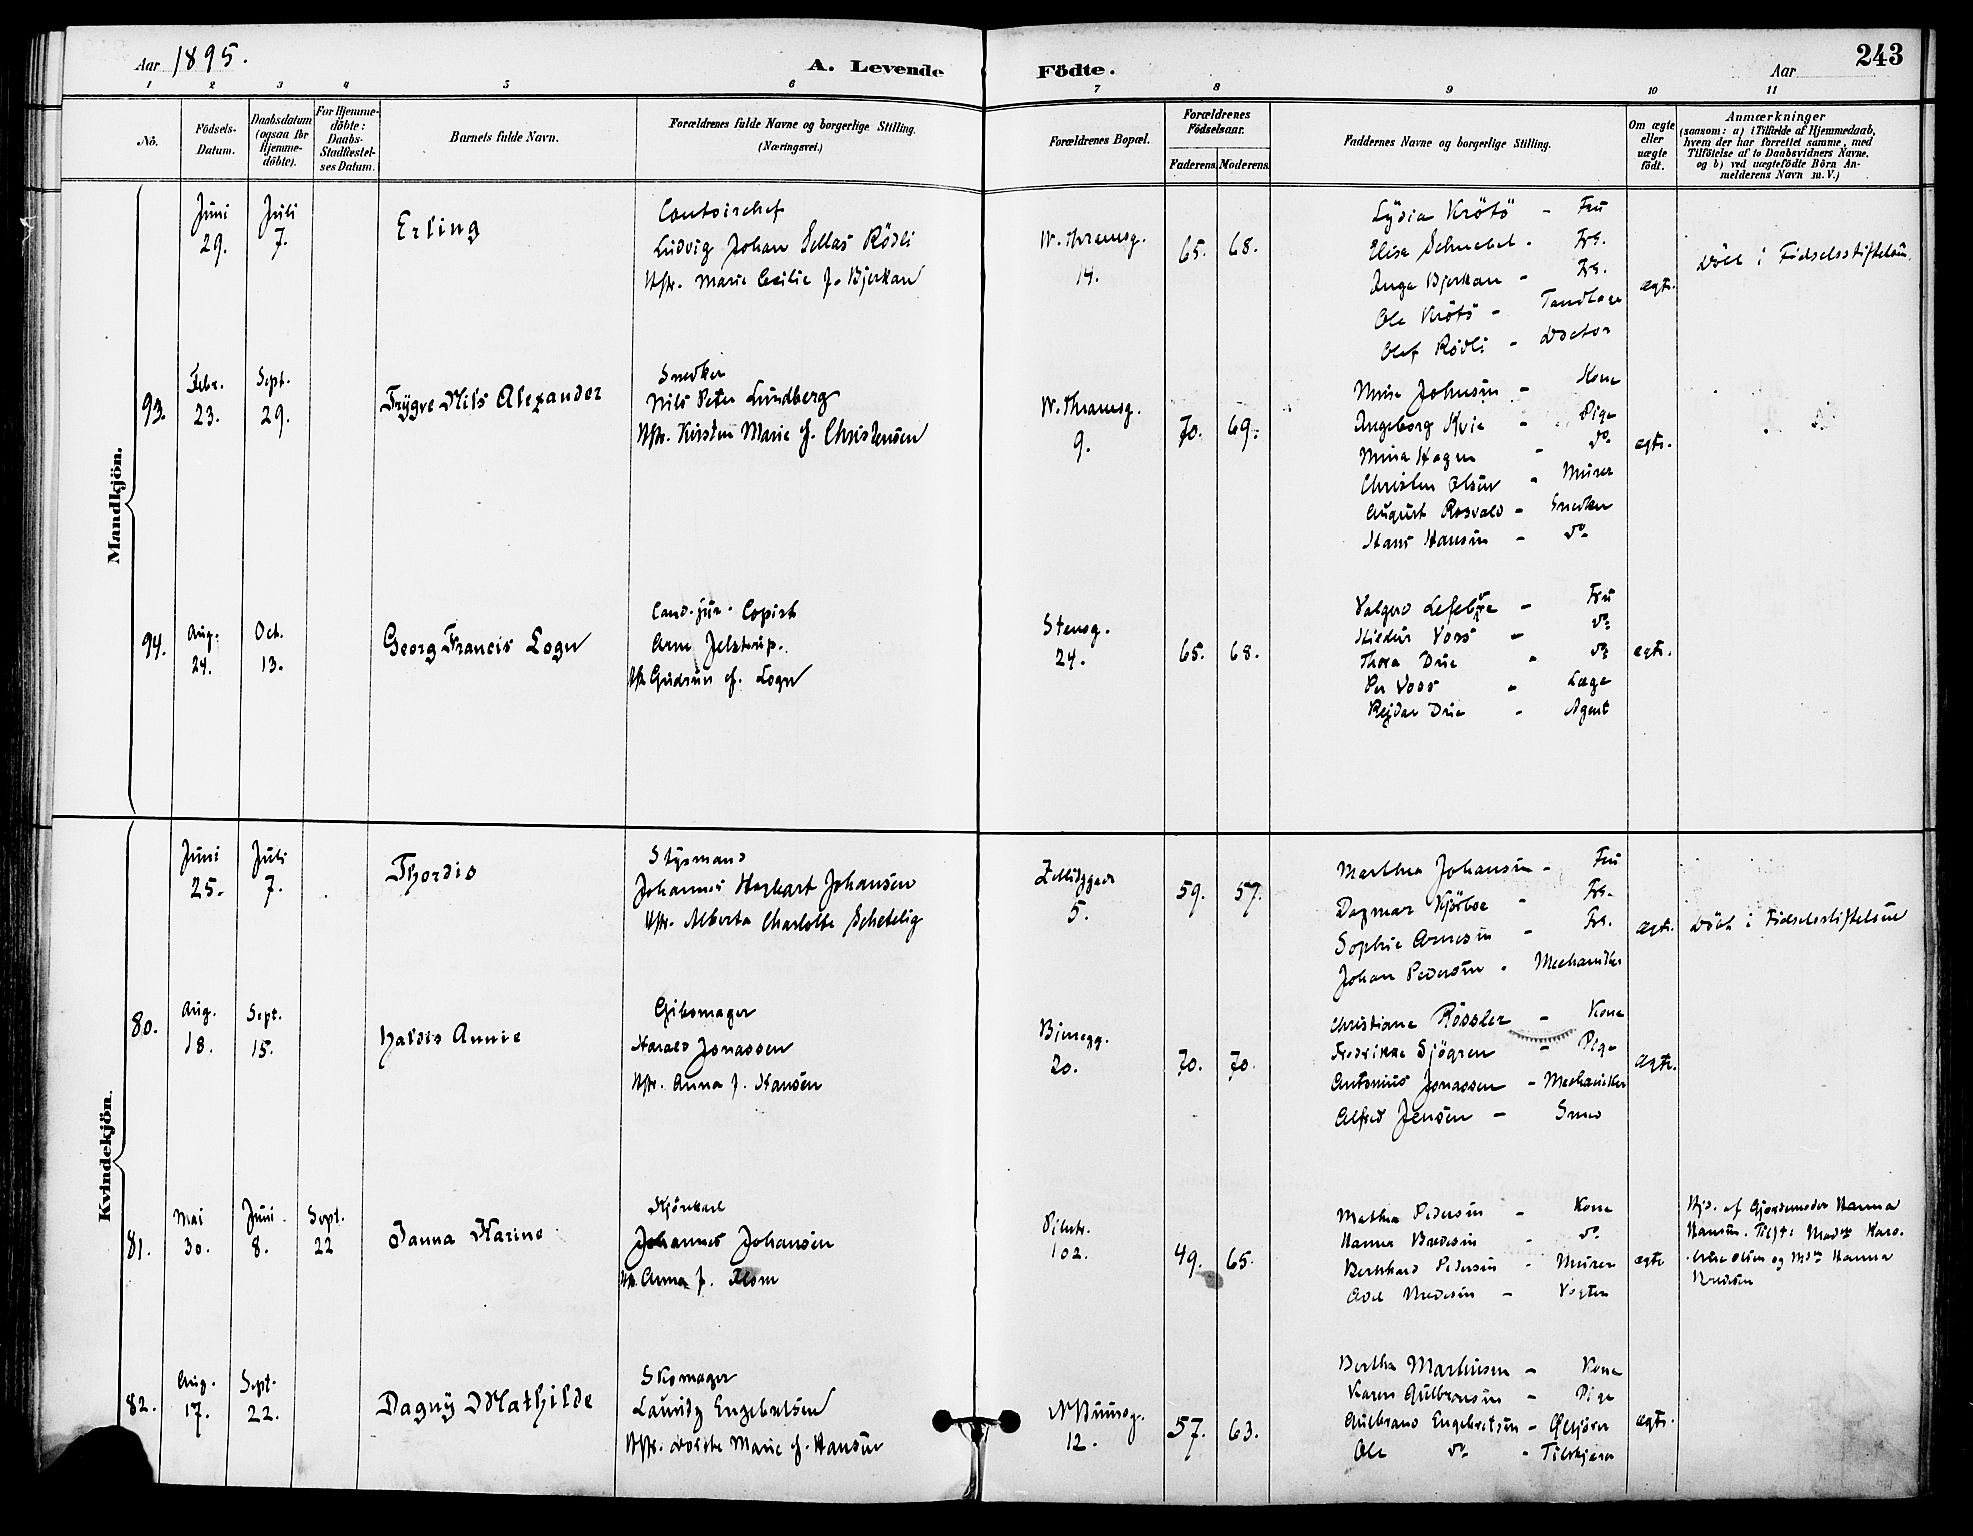 Aar 1895.
A. Levende Födte.
Aar
243
1 2 3 4 5 6 7 8 9 10 11
No.
Födsels-Datum.
Daabsdatum (ogsaa for Hjemme-döbte).
For Hjemme-döbte: Daabs-Stadfæstel-ses Datum.
Barnets fulde Navn.
Forældrenes fulde Navne og borgerlige Stilling. (Næringsvei.)
Forældrenes Bopæl.
Forældrenes Födselsaar.
Faderens. Moderens.
Faddernes Navne og borgerlige Stilling.
Om ægte eller uægte födt.
Anmærkninger
(saasom: a) i Tilfælde af Hjemmedaab,
hvem der har forrettet samme, med
Tilföielse af to Daabsvidners Navne,
og b) ved uægtefödte Börn An-
melderens Navn m. V.)
Mandkjön.
Juni 29.
Juli 7.
Erling
Contoirchef
Ludvig Johan Sellas Rödli
Hstr. Marie Cecilie f. Bjerkan
W. Thranesg. 14.
65. 68.
Lydia Krötö - Fru
Elise Schnebel - Frk.
Inga Bjerkan - Frk.
Ole Krötö - Tandlæge
Olaf Rödli - Doctor
ægte.
Döbt i Födselsstiftelsen.
93.
Febr. 23.
Sept. 29.
Trygve Nils Alexander
Snedker
Nils Peter Lundberg
Hstr. Kirsten Marie f. Christensen
W. Thranesg. 9.
70. 69.
Mina Johnsen - Kone
Ingeborg Hvie - Pige
Mina Hagen - do.
Christen Olsen - Murer
August Rosvald - Snedker
Hans Hansen - do.
ægte.
94.
Aug. 24.
Oct. 13.
Georg Francis Logn
Cand. jur. Copist
Arne Jelstrup.
Hstr. Gudrun f. Logn
Stensg. 24.
65. 68.
Valgerd Lefebvre - Fru
Hildur Voss - do.
Thora Due - do.
Per Voss - Læge
Rejdar Due - Agent
ægte.
Kvindekjön.
Juni 25.
Juli 7.
Thordis
Styrmand
Johannes Hagbart Johansen
Hstr. Alberta Charlotte Schetelig
5.
59. 57.
Marthea Johansen - Fru
Dagmar Kjörboe - Frk.
Sophie Arnesen - Frk.
Johan Pedersen - Mechaniker
ægte.
Döbt i Födselsstiftelsen
80.
Aug. 18.
Sept. 15.
Haldis Annie
Gibsmager
Harald Jonassen
Hstr. Anna f. Hansen
Bjeregg. 20.
70. 70.
Christiane Rössler - Kone
Fredrikke Sjögren - Pige
Antonius Jonassen - Mechaniker
Alfred Jensen - Smed
ægte.
81.
Mai 30.
Juni 8.
Sept. 22
Janna Karine
Kjörekarl
Johannes Johansen
Hstr. Anna f. Flom
Pilestr. 102.
49. 65.
Mathea Pedersen - Kone
Hanna Bredesen - do.
Bernhard Pedersen - Murer
Adel Bredesen - Vogter
ægte
Hjd. af Gjordemoder Hanna
Hansen. Tilst: Madm Karo-
line Olsen og Mdm Hanna
Bredesen
82.
Aug. 17.
Sept. 22.
Dagny Mathilde
Skomager
Lauritz Engebretsen
Hstr. Dorthe Marie f. Hansen
12.
57. 63.
Berthe Marthinsen - Kone
Karen Gulbransen - Pige
Gulbrand Engebretsen - Ølkjörer
Ole do. - Tilskjærer
ægte.